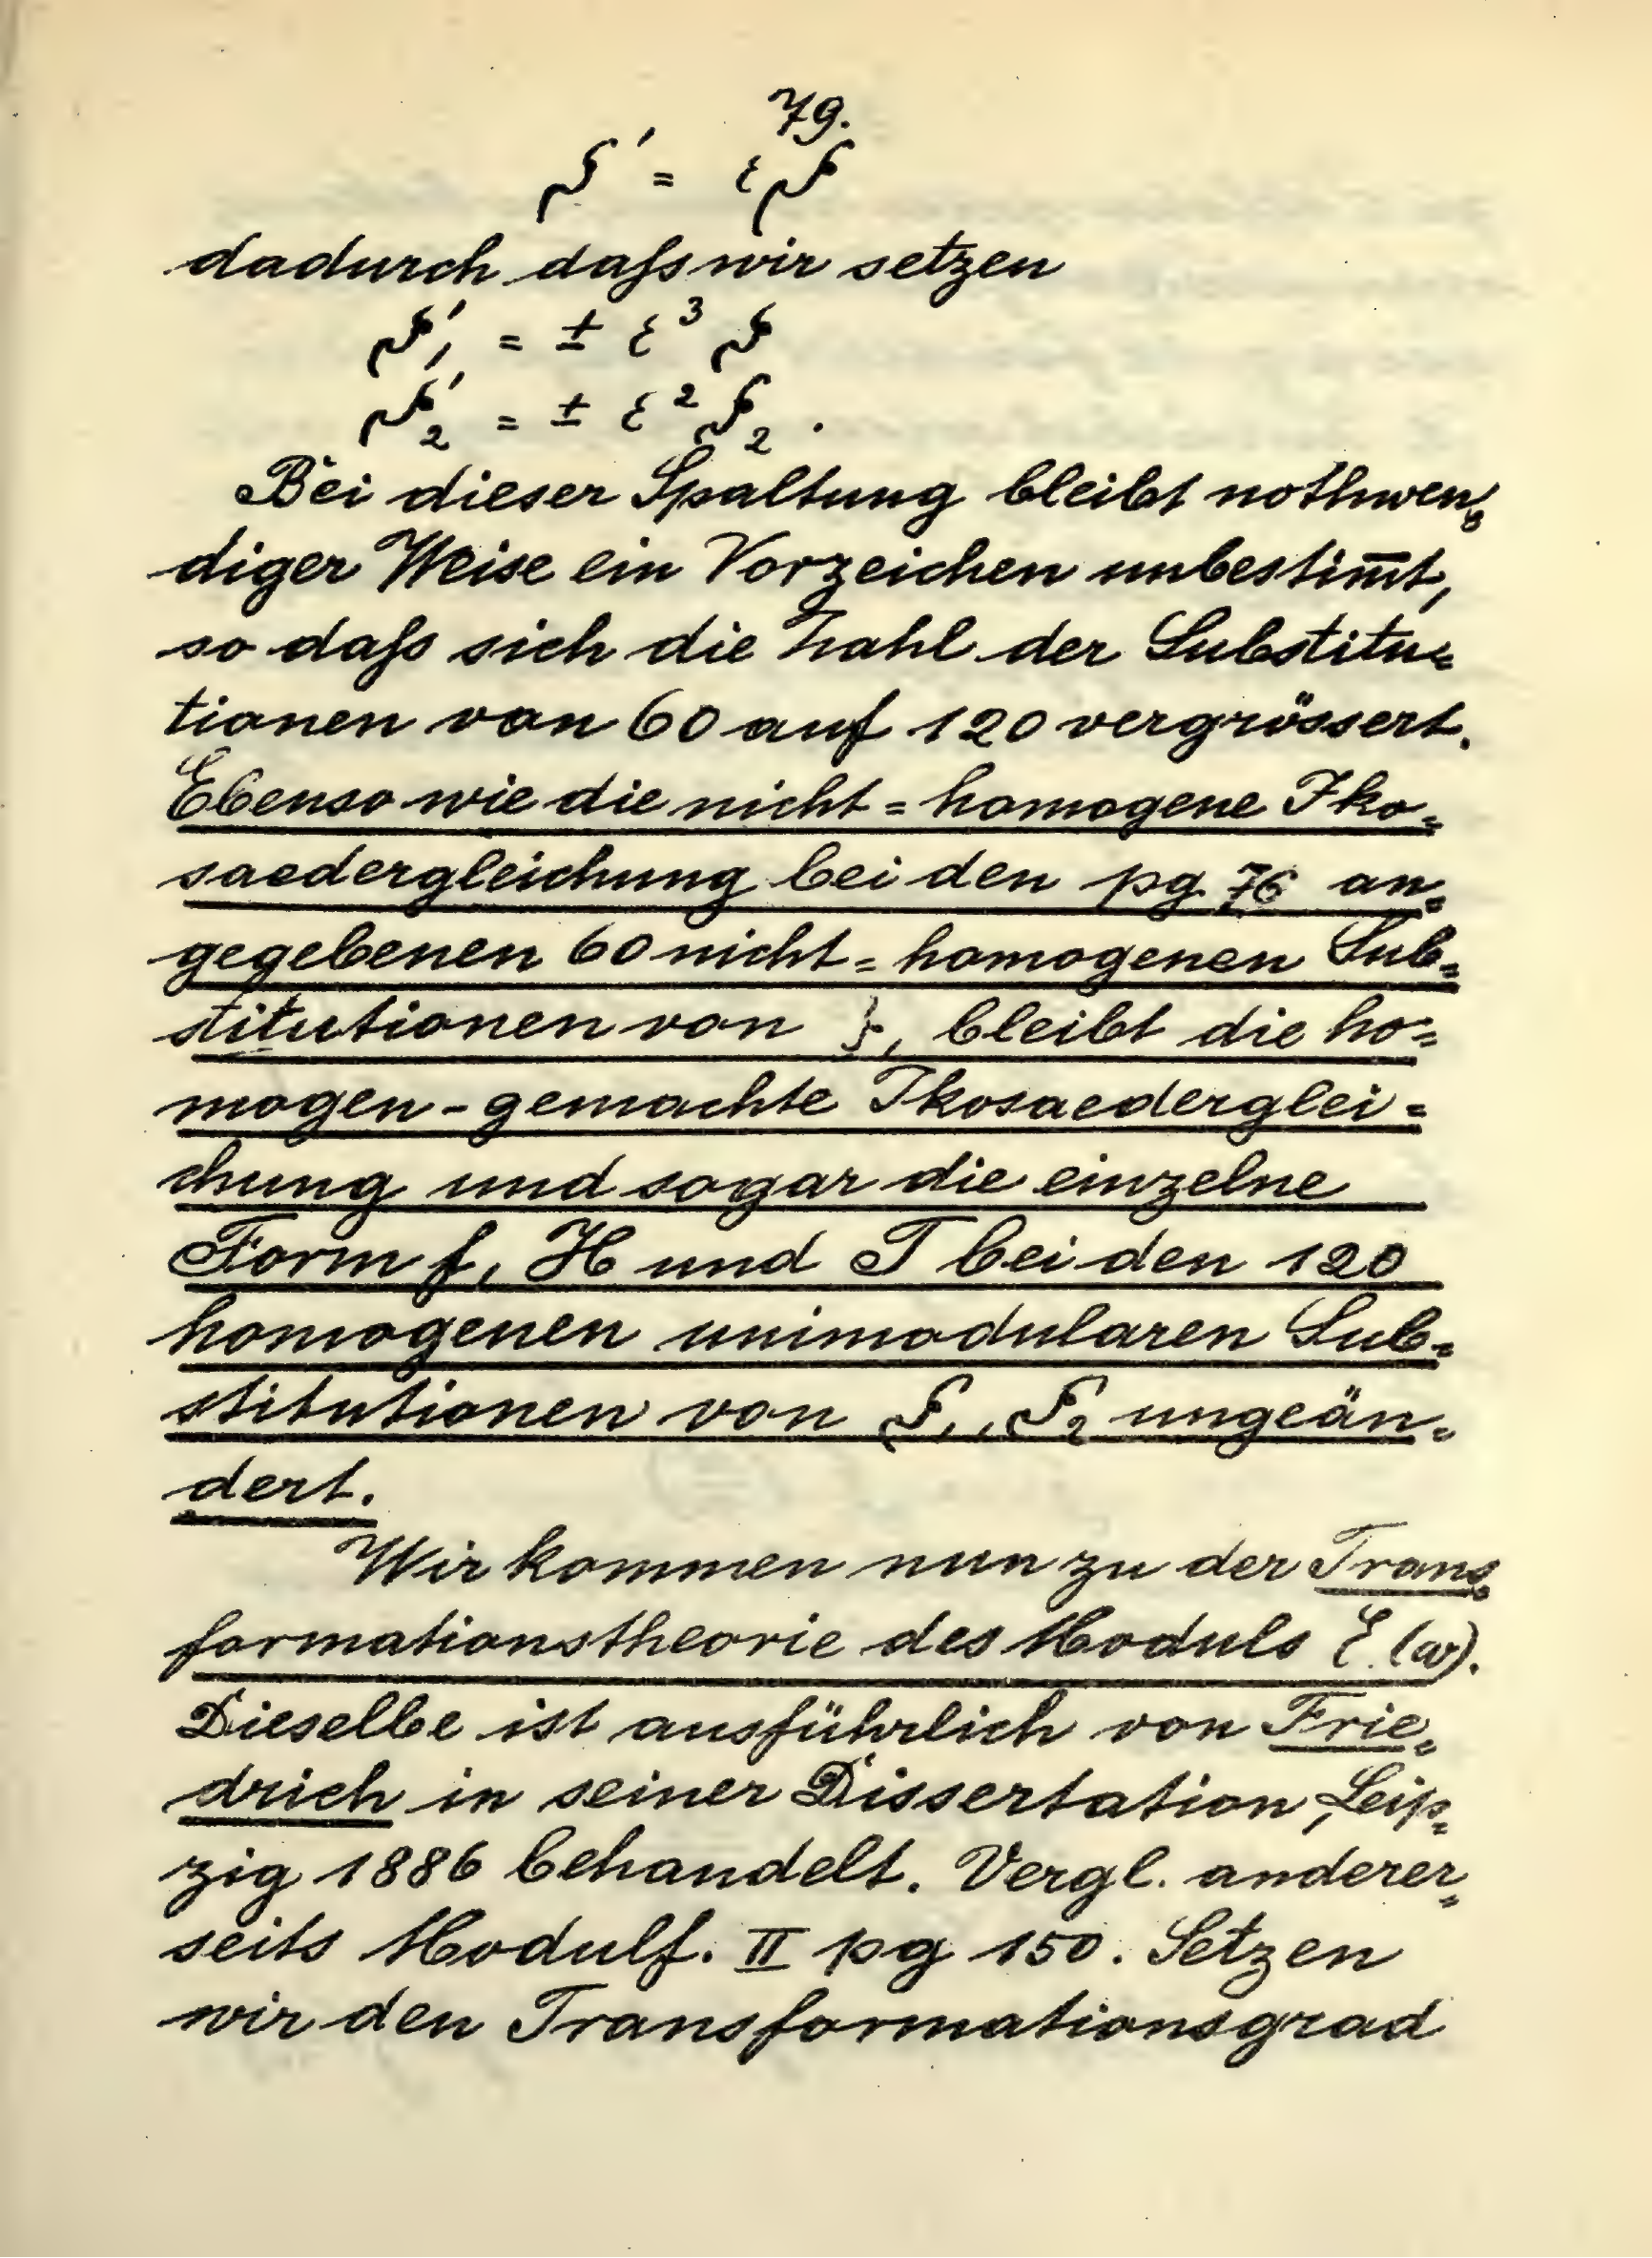 79.
ζ' = εζ
dadurch daſs wir setzen
ζ'₁ = ± ε³ ζ
ζ'₂ = ± ε² ζ₂ .
Bei dieser Spaltung bleibt nothwen=
diger Weise ein Vorzeichen unbestim̅t,
so daſs sich die Zahl der Substitu=
tionen von 60 auf 120 vergrössert.
Ebenso wie die nicht=homogene Iko=
saedergleichung bei den pg. 76 an=
gegebenen 60 nicht=homogenen Sub=
stitutionen von ζ, bleibt die ho=
mogen-gemachte Ikosaederglei=
chung und sogar die einzelne
Form f, H und T bei den 120
homogenen unimodularen Sub=
stitutionen von ζ₁, ζ₂ ungeän=
dert.
Wir kommen nun zu der Trans=
formationstheorie des Moduls ξ(ω).
Dieselbe ist ausführlich von Frie=
drich in seiner Dissertation, Leip=
zig 1886 behandelt. Vergl. anderer=
seits Modulf. II pg 150. Setzen
wir den Transformationsgrad